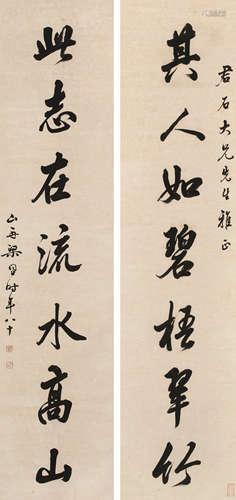 君石大兄先生雅正
其人如碧梧翠竹
此志在流水高山
山舟梁同书时年八十